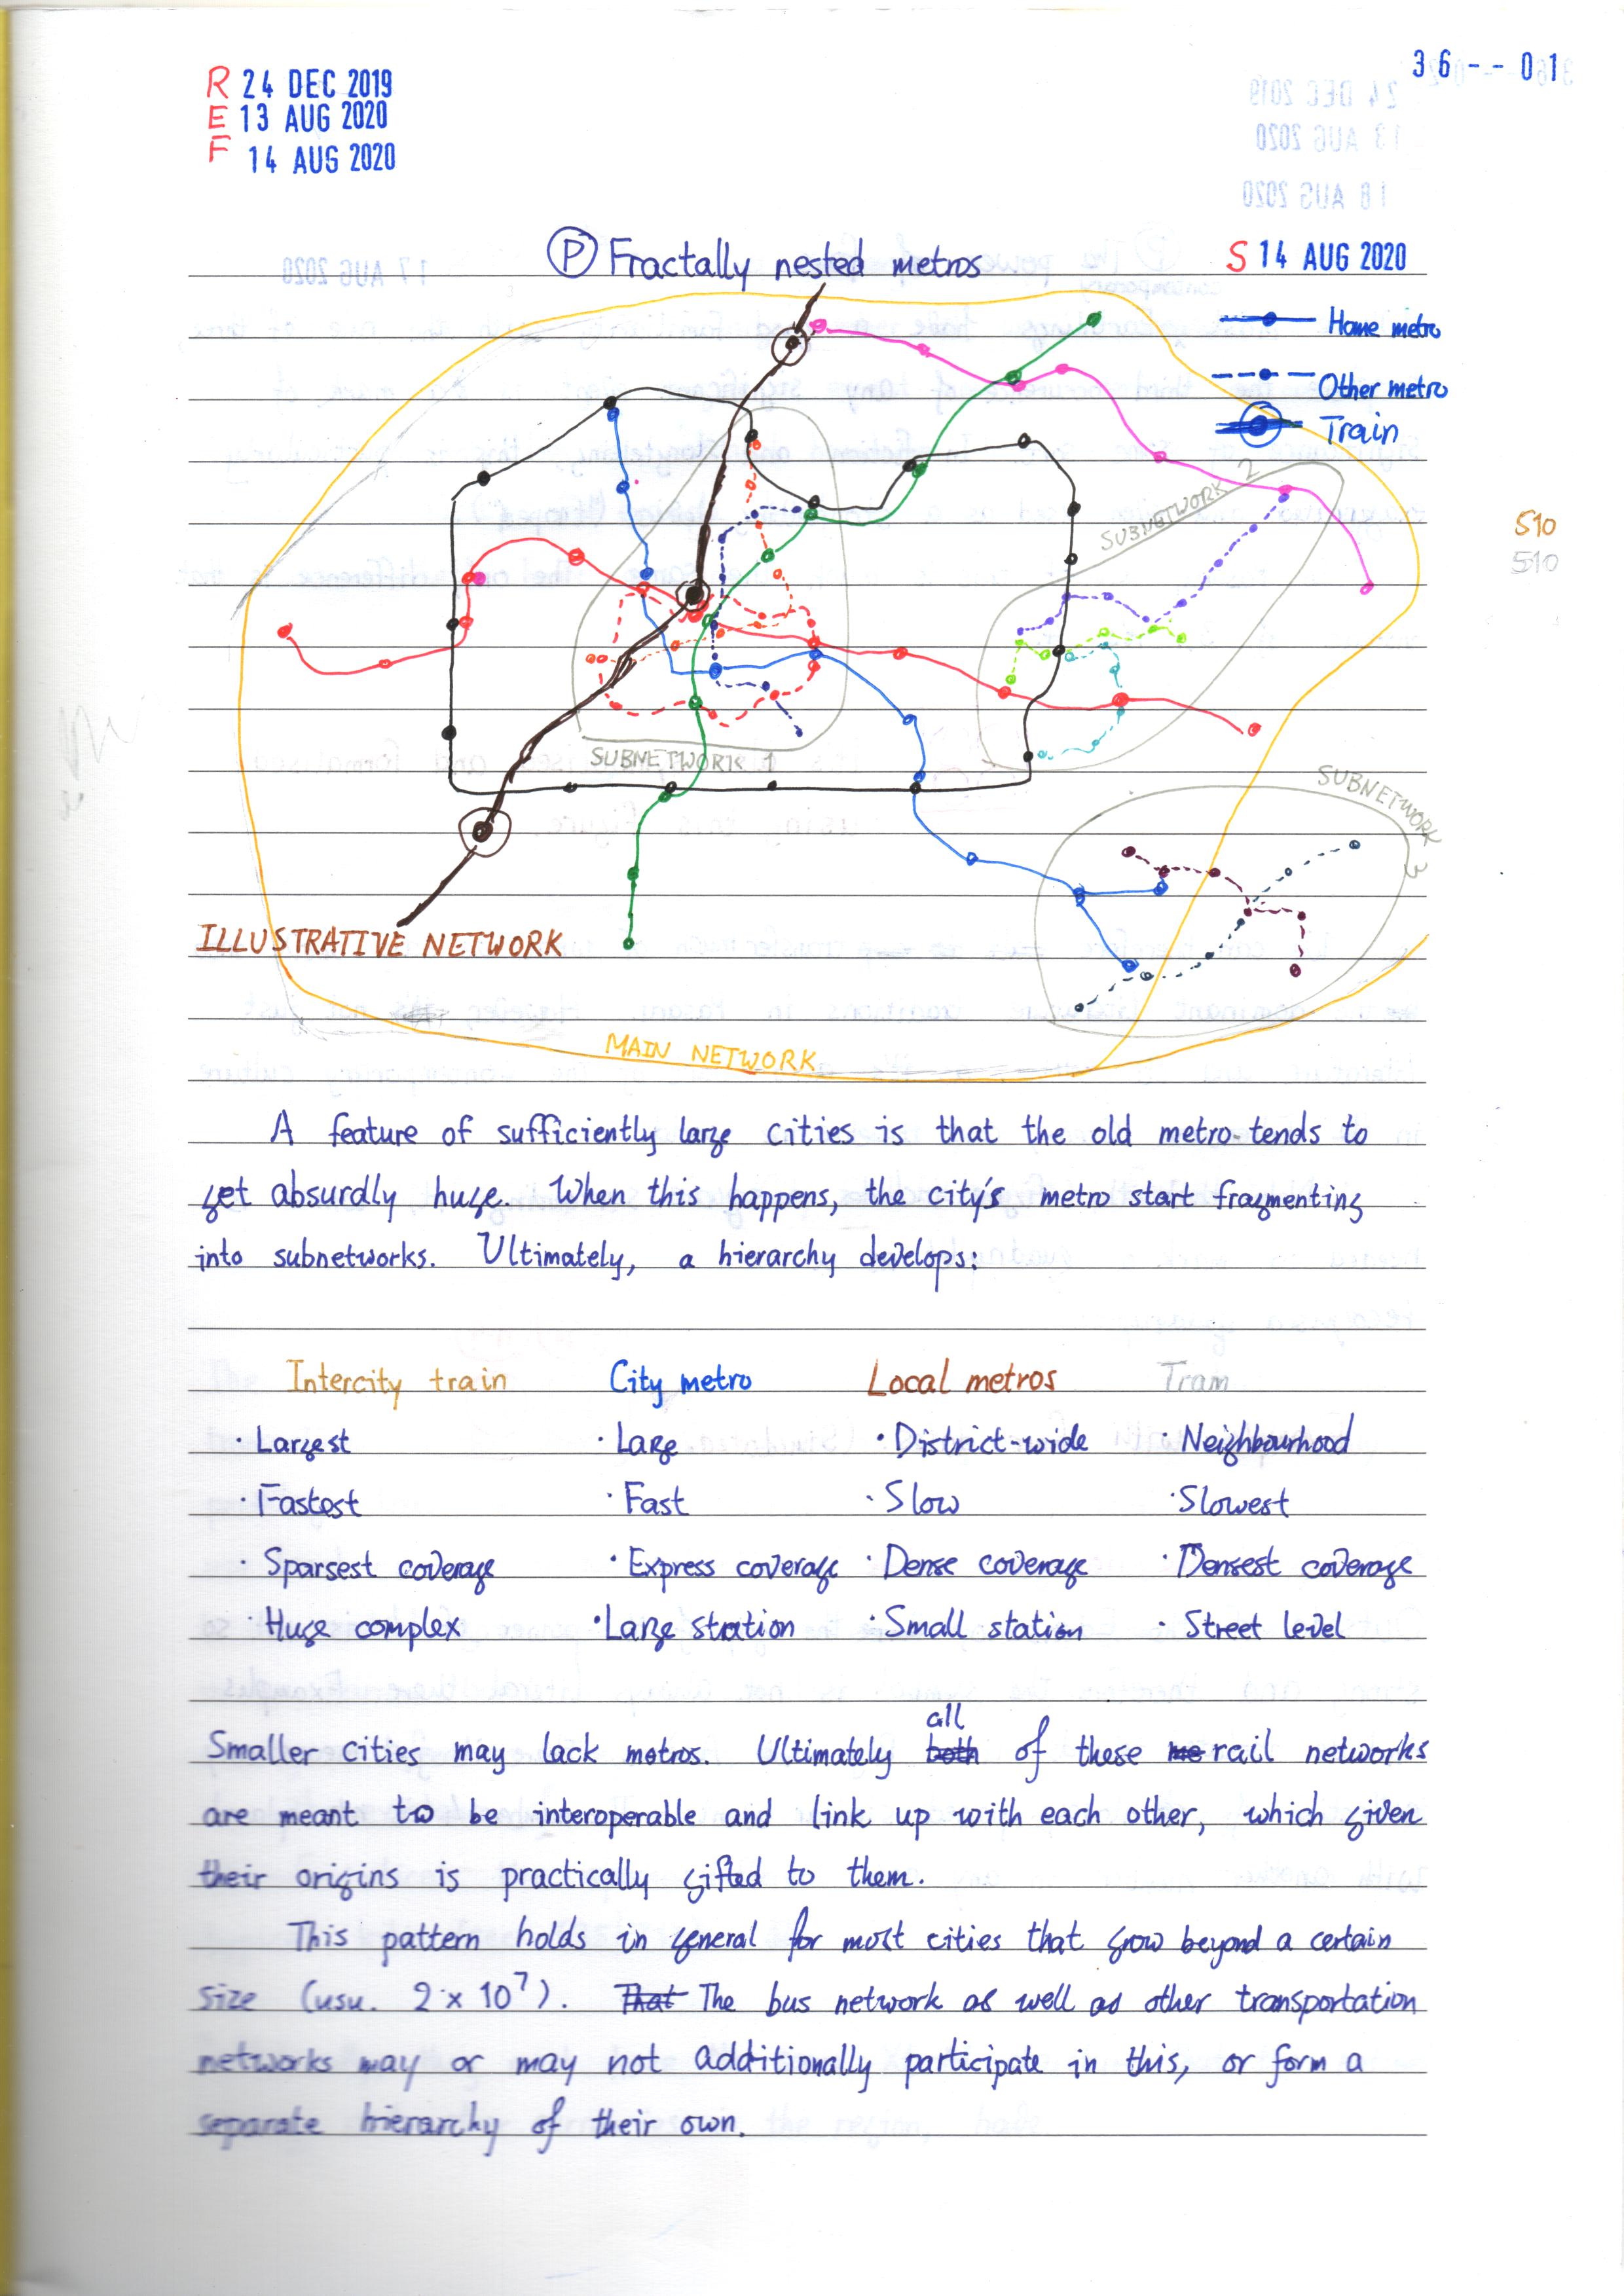 36--01
R 24 DEC 2019
E 13 AUG 2020
F 14 AUG 2020
P Fractally nested metros
S 14 AUG 2020
Home metro
Other metro
Train
510
510
SUBNETWORK 2
SUBNETWORK 1
SUBNETWORK 3
ILLUSTRATIVE NETWORK
MAIN NETWORK
A feature of sufficiently large cities is that the old metro tends to
get absurdly huge. When this happens, the city's metro start fragmenting
into subnetworks. Ultimately, a hierarchy develops:
Intercity train City metro Local metros Tram
· Largest · Large · District-wide · Neighbourhood
· Fastest · Fast · Slow · Slowest
· Sparsest coverage · Express coverage · Dense coverage · Densest coverage
· Huge complex · Large station · Small station · Street level
all
Smaller cities may lack metros. Ultimately both of these me rail networks
are meant to be interoperable and link up with each other, which given
their origins is practically gifted to them.
This pattern holds in general for most cities that grow beyond a certain
size (usu. 2 × 10⁷). That The bus network as well as other transportation
networks may or may not additionally participate in this, or form a
separate hierarchy of their own.